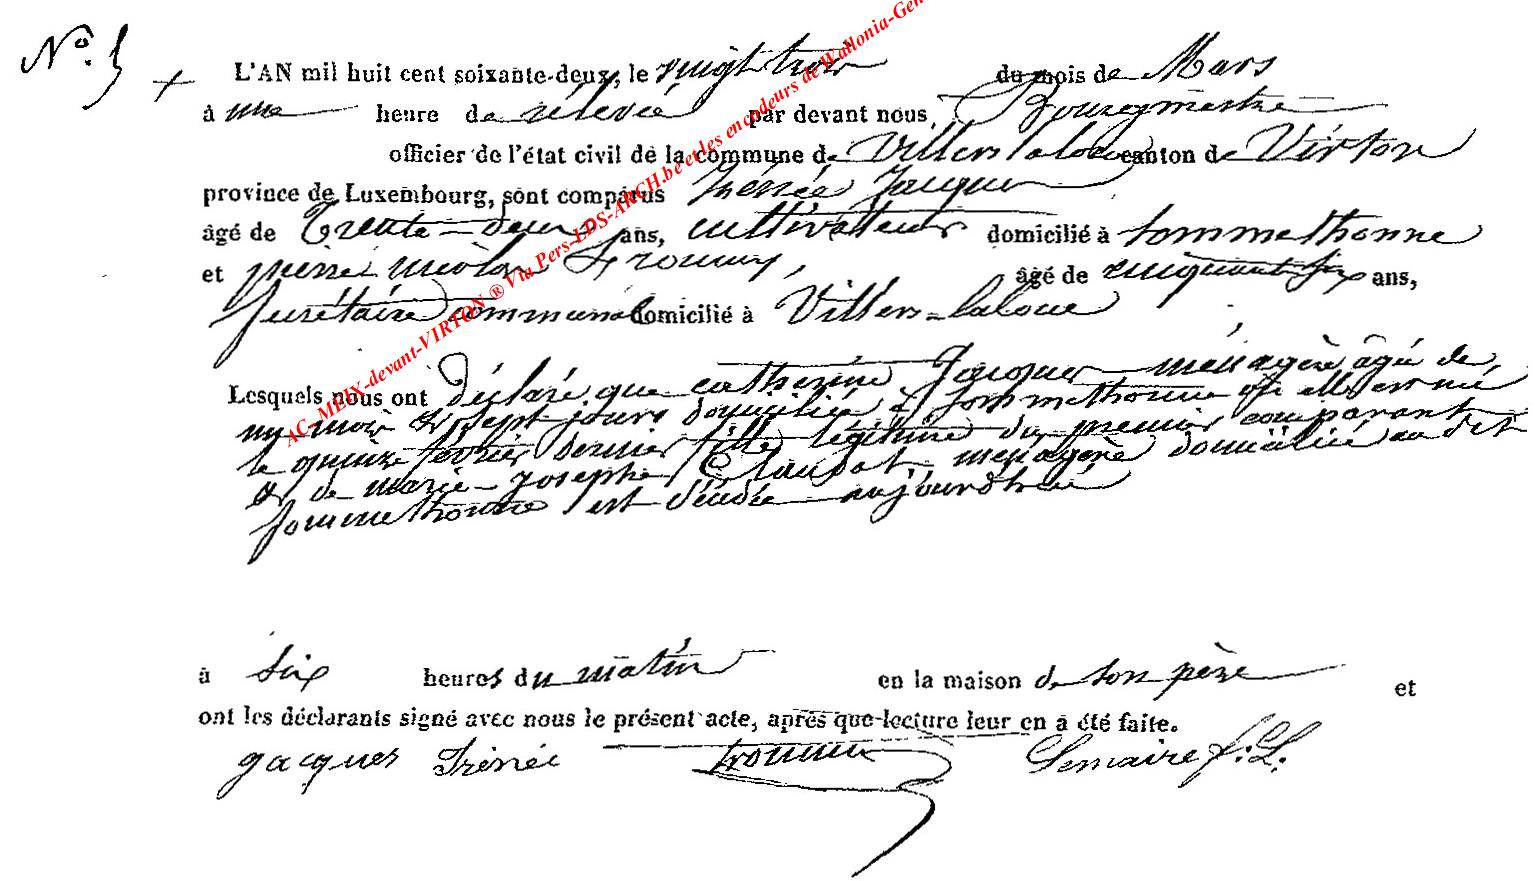 N° 5
L'AN mil huit cent soixante-deux, le vingt trois du mois de Mars
à une heure de rélévée par devant nous, Bourgmestre
officier de l'état civil de la commune de Villers laloue canton de Virton
province de Luxembourg, sont comparus Irénée Jacques
âgé de Trente-deux ans, cultivateur domicilié à Sommethonne
et pierre nicolas âgé de cinquante six ans,
Secrétaire communal domicilié à Villers-laloue
Lesquels nous ont déclaré que catherine Jacques ménagère âgée de
un mois & sept jours domiciliée à Sommethonne où elle est née
le quinze février dernier fille légitime du premier comparant
& de marie-josephe Claudot ménagère domiciliée au dit
Sommethonne est décédée aujourd'hui
à six heures du matin en la maison de son père et
ont les déclarants signé avec nous le présent acte, après que lecture leur en a été faite.
Jacques Irénée Lemaire J.L.
AC-MEIX-devant-VIRTON ® Via Pers-LDS-ARCH.be et les encodeurs de Wallonia-Gen